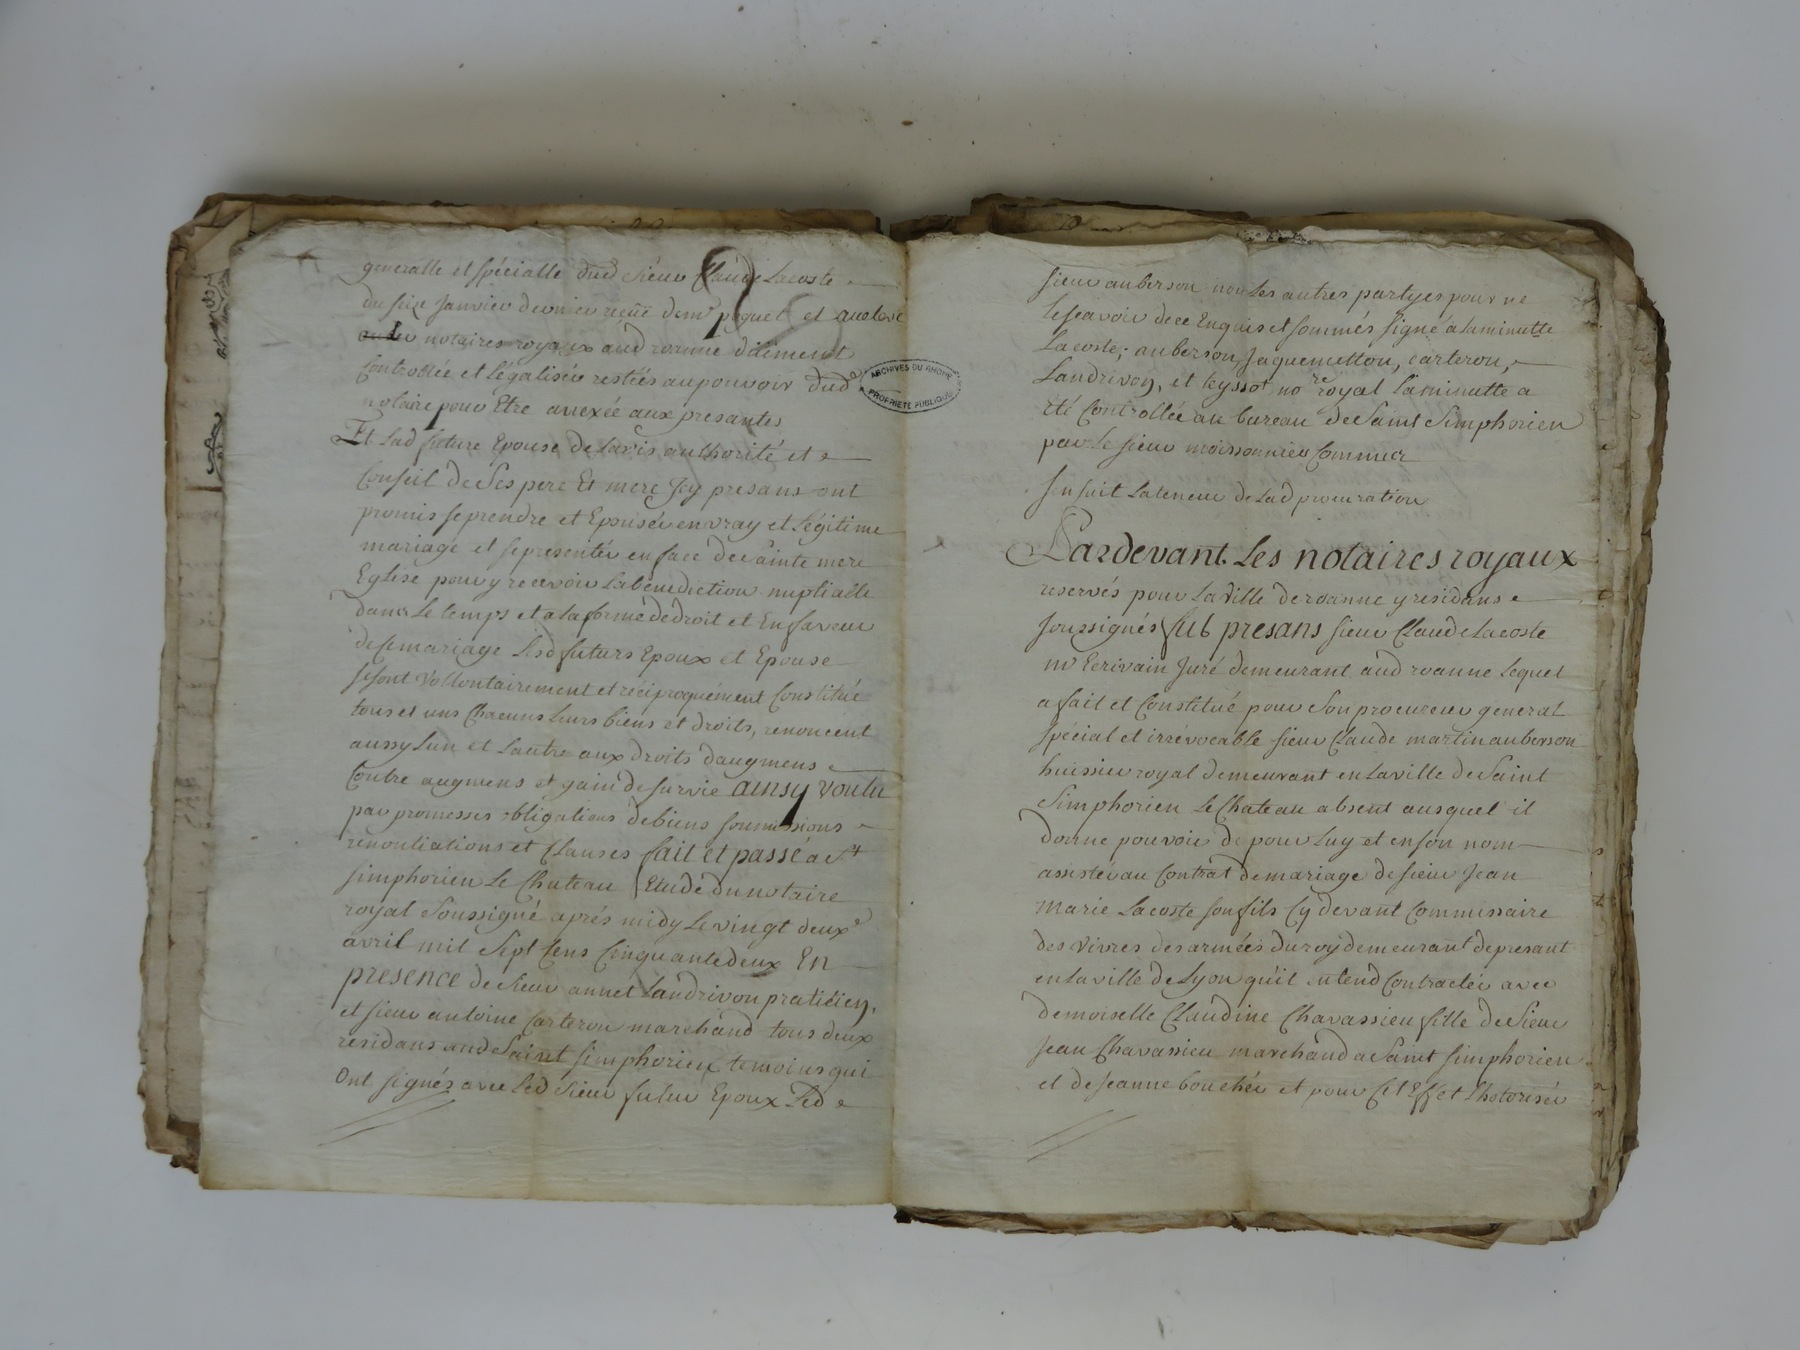 generalle et spécialle dud Sieur Claude Lacoste
du six Janvier dernier reçue de me poquet et
notaires royaux aud roanne düement
Controllée et Légalisée restées au pouvoir dud
notaire pour Etre anexée aux presantes
Et Lad future Epouse de Lavis authorité et
Conseil de Ses pere Et mere Icy presans ont
promis se prendre et Epouser en vray et Légitime
mariage et se presenter en face de Sainte mere
Eglise pour y recevoir La bénediction nuptialle
dans Le temps et a la forme de droit et En faveur
de se mariage Lesd futurs Epoux et Epouse
se sont Vollontairement et réciproquement Constitué
tous et uns Chacuns Leurs biens et droits, renoncent
aussy Lun et Lautre aux droits daugmens
Contre augmens et gain de survie ainsy voulu
par promesses obligations de biens soumissions
renontiations et Clauses fait et passé a St
simphorien Le Chateau Etude du notaire
royal Soussigné aprés midy Le vingt deuxe
avril mil Sept Cens Cinquante deux En
presence de Sieur annet Landrivon pratitien,
et sieur antoine Carteron marchand tous deux
residans aud Saint simphorien temoins qui
Ont signés avec Led Sieur futur Epoux Led
ARCHIVES DU RHONE
PROPRIETE PUBLIQUE
sieur auberson non Les autres partyes pour ne
Le scavoir de ce Enquis et sommés signé a la minutte
Lacoste, auberson, Jaquemetton, carteron,
Landrivon, et teyssot nore royal La minutte a
été Controllée au bureau de Saint Simphorien
par Le sieur moissonnier Commier
Sen suit La teneur de Lad procuration
Pardevant Les notaires royaux
reservés pour La ville de roanne y residans
soussignés fut presans sieur Claude Lacoste
me Ecrivain Juré demeurant aud roanne Lequel
a fait et Constitué pour Son procureur general
spécial et irrévocable sieur Claude martin auberson
huissier royal demeurant en La ville de Saint
Simphorien Le Chateau absent auquel il
donne pouvoir de pour Luy et en son nom
assister au Contrat de mariage de sieur Jean
Marie Lacoste son fils Cy devant Commissaire
des vivres des armées du roy demeurant de presant
en La ville de Lyon qu'il entend Contracter avec
demoiselle Claudine Chavassieu fille de Sieur
Jean Chavassieu marchand a Saint simphorien
et de Jeanne bouchér et pour Cet Effet Lhotoriser